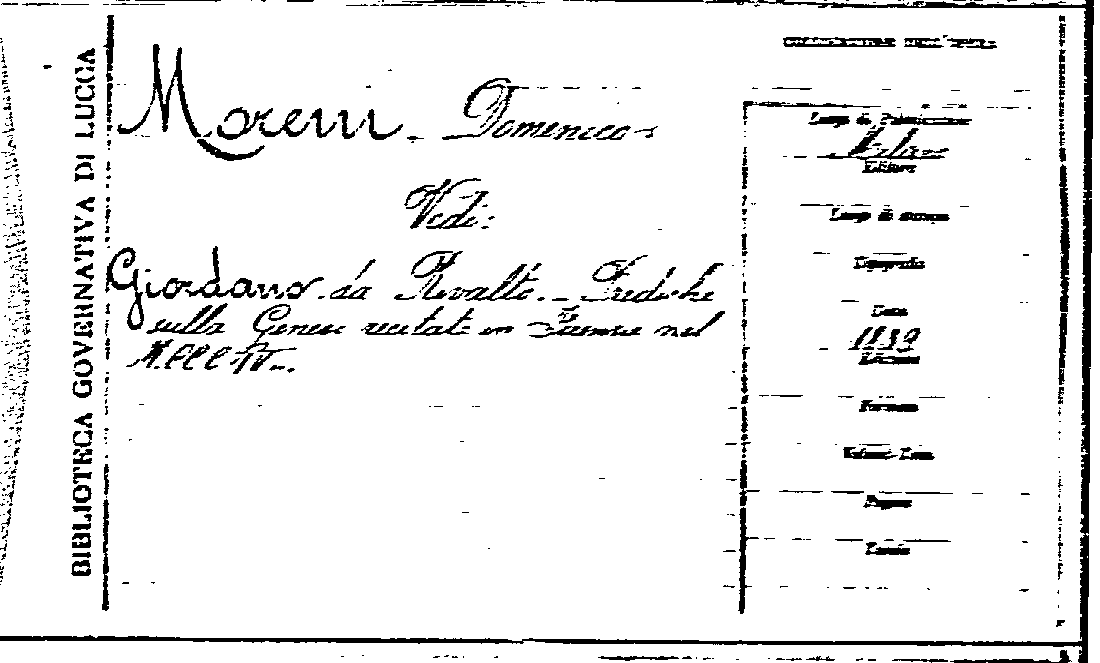 BIBLIOTECA GOVERNATIVA DI LUCCA
Moreni Domenico
Vedi:
Giordano da Rivalto. - Prediche
sulla Genesi recitate in Firenze nel
MCCCIV.
Luogo di Pubblicazione
Milano
Editore
Luogo di stampa
Tipografia
Data
1839
Edizione
Formato
Pagine